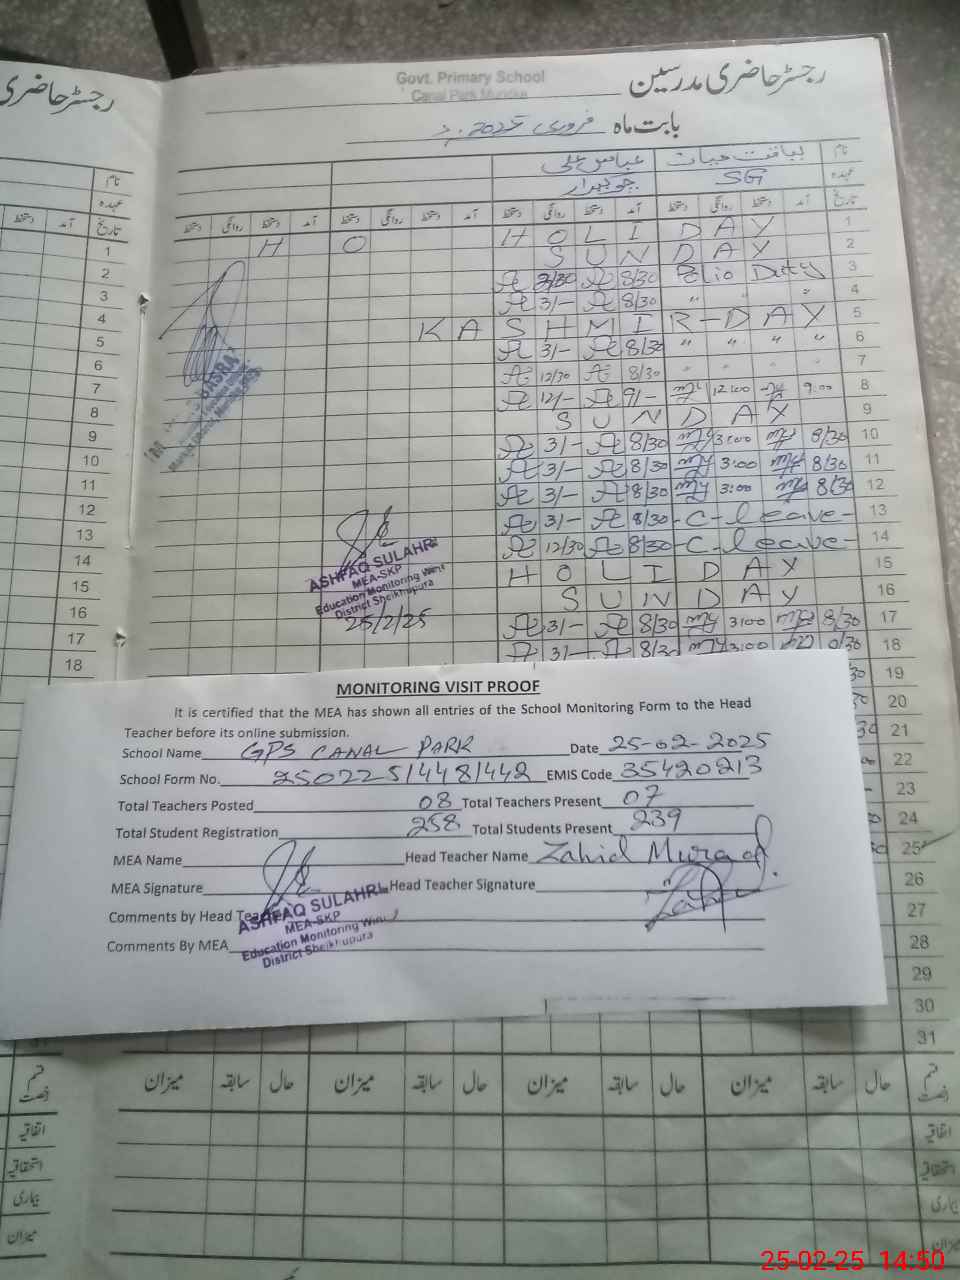 رجسٹر حاضری
Govt. Primary School
Canal Park Muridke
رجسٹر حاضری مدرسین
بابت ماہ فروری 2025ء
نام
لیاقت حیات
عباس علی
عہدہ
SG
چوکیدار
تاریخ آمد دستخط روانگی دستخط آمد دستخط روانگی دستخط آمد دستخط روانگی دستخط آمد دستخط روانگی دستخط
H O HOLI DAY 1
SUN DAY 2
3/30 8/30 Polio Duty 3
31- 8/30 " " " 4
KASHMIR-DAY 5
31- 8/30 " " " " 6
12/30 8/30 " " " " 7
12/- 9/- 12:00 9:00 8
SUNDAY 9
31- 8/30 3:00 8/30 10
31- 8/30 3:00 8/30 11
31- 8/30 3:00 8/30 12
31- 8/30 -C-leave- 13
12/30 8/30 -C-leave- 14
HOLIDAY 15
SUNDAY 16
31- 8/30 3:00 8/30 17
31- 8/30 3:00 18
19
20
21
22
23
24
25
26
27
28
29
30
31
ASHFAQ SULAHRI
MEA-SKP
Education Monitoring Wing
District Sheikhupura
25/2/25
MONITORING VISIT PROOF
It is certified that the MEA has shown all entries of the School Monitoring Form to the Head
Teacher before its online submission.
School Name GPS CANAL PARK Date 25-02-2025
School Form No. 250225/448/442 EMIS Code 35420213
Total Teachers Posted 08 Total Teachers Present 07
Total Student Registration 258 Total Students Present 239
MEA Name Head Teacher Name Zahid Murad
MEA Signature Head Teacher Signature
Comments by Head Teacher
ASHFAQ SULAHRI
MEA-SKP
Education Monitoring Wing
District Sheikhupura
Comments By MEA
قسم رخصت حال سابقہ میزان حال سابقہ میزان حال سابقہ میزان حال سابقہ میزان
اتفاقیہ
استحقاقیہ
بیماری
میزان
25-02-25 14:50